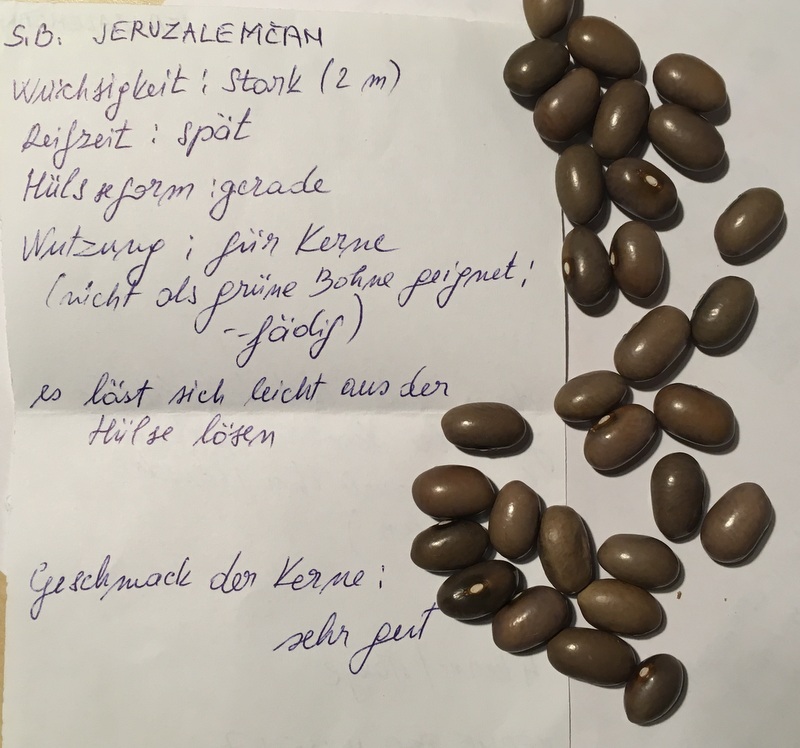 S.B. JERUZALEMČAN
Wüchsigkeit : Stark (2 m)
Reifzeit : spät
Hülseform : gerade
Nutzung ; für Kerne
(nicht als grüne Bohne geignet;
-- fädig)
es läst sich leicht aus der
Hülse lösen
Geschmack der Kerne :
sehr gut